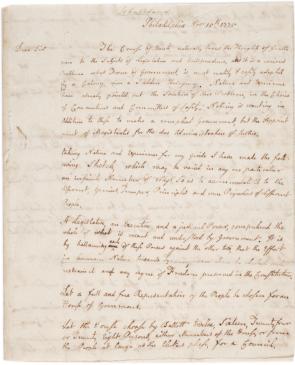 Philadelphia Nov. 15th. 1775
Dear Sir
The Course of Events naturally turns the Thoughts of Gentle
men to the Subjects of Legislation and Jurisprudence, and it is a curious
Problem what Form of Government is most readily & easily adopted
by a Colony, upon a Sudden Emergency. Nature and Experience
have already pointed out the Solution of this Problem, in the Choice
of Conventions and Committees of Safety. Nothing is wanting in
Addition to these to make a compleat Government, but the Appoint
ment of Magistrates for the due Administration of Justice.
Taking Nature and Experience for my Guide I have made the follo
wing Sketch, which may be varied in any one particular
an infinite Number of Ways So as to accommodate it to the
different, Genius, Temper, Principles and even Prejudices of different
People.
A Legislative, an Executive and a judicial Power, comprehend the
whole of what is meant and understood by Government. It is
by ballancing each of these Powers against the other two, that the Effort
in humane Nature towards Tyranny can alone be checked and
restrained and any degree of Freedom preserved in the Constitution.
Let a full and free Representation of the People be chosen for an
House of Commons.
Let the House choose by Ballott twelve, Sixteen, Twenty four
or Twenty Eight Persons, either Members of the House, or from
the People at Large as the Electors please, for a Council.